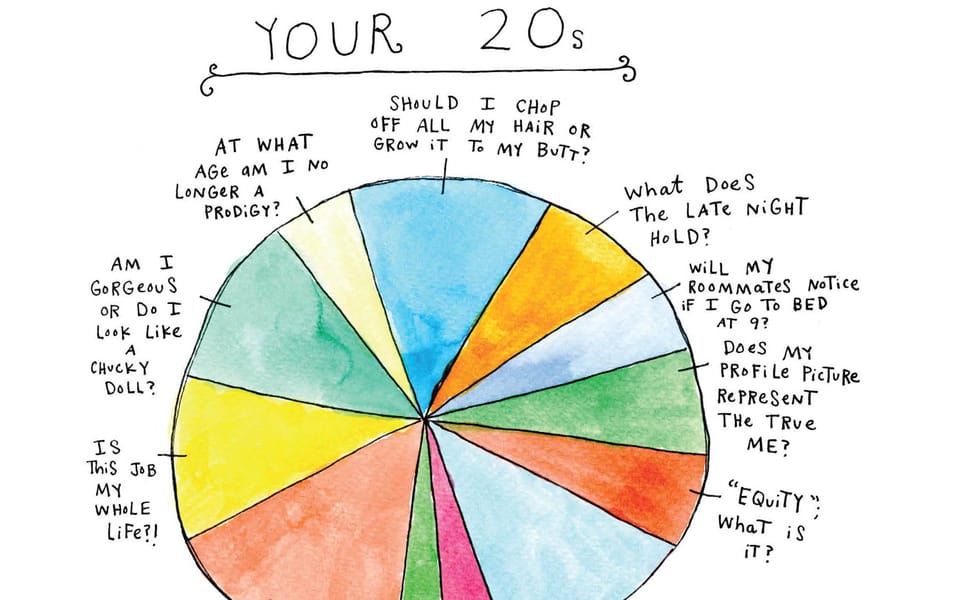 YOUR 20s
SHOULD I CHOP
OFF ALL MY HAIR OR
GROW iT To MY BUTT?
AT WHAT
AGe aM I No
LoNGeR A
PRoDiGY?
WHat DoeS
THe LATe NiGHT
HoLD?
AM I
GoRGeouS
OR Do I
LooK LiKe
A
CHuCKY
DoLL?
WiLL MY
RooMMATeS NoTiCe
iF I Go To BeD
AT 9?
DoeS MY
PRoFiLe PiCTuRe
RePReSeNT
THe TRue
Me?
IS
THiS JoB
MY
WHoLe
LiFe?!
"EQuiTY";
WHaT iS
iT?